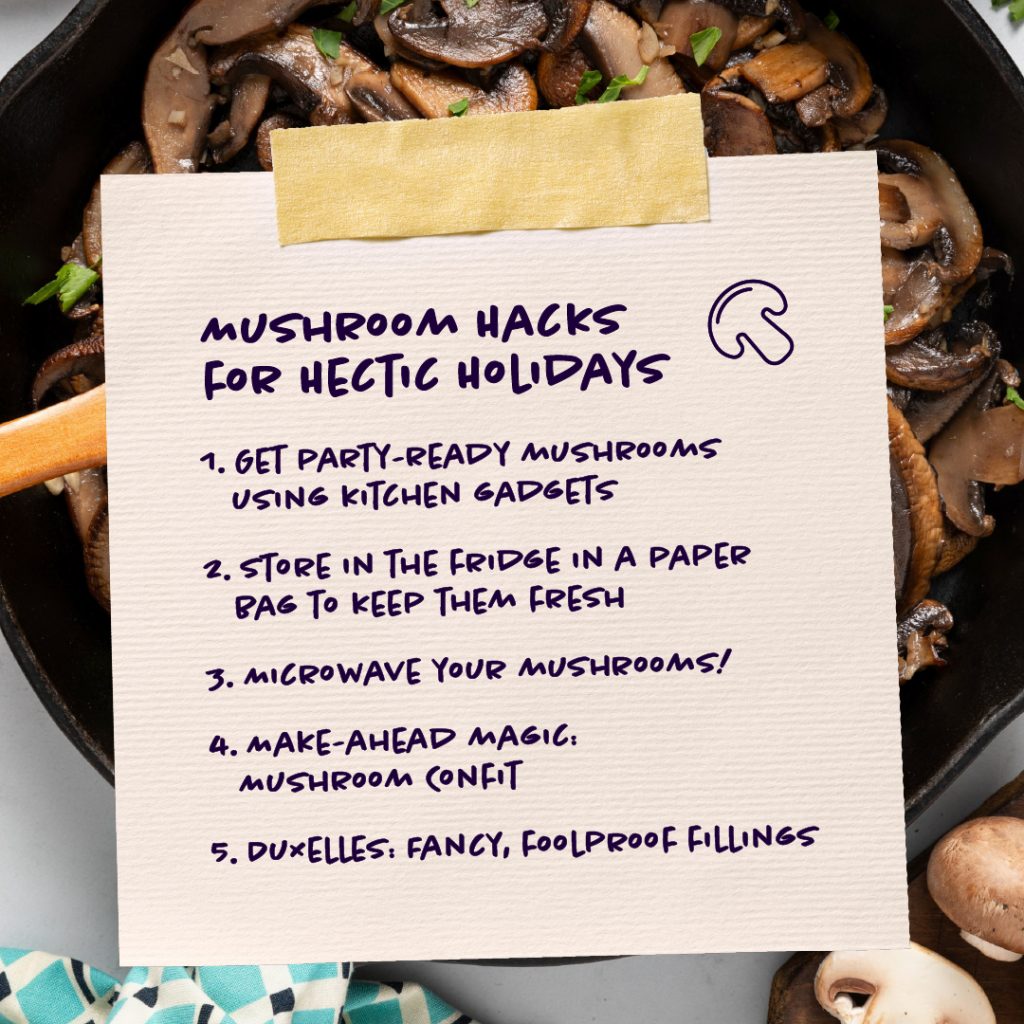 MUSHROOM HACKS
FOR HECTIC HOLIDAYS
1. GET PARTY-READY MUSHROOMS
USING KITCHEN GADGETS
2. STORE IN THE FRIDGE IN A PAPER
BAG TO KEEP THEM FRESH
3. MICROWAVE YOUR MUSHROOMS!
4. MAKE-AHEAD MAGIC:
MUSHROOM CONFIT
5. DUXELLES: FANCY, FOOLPROOF FILLINGS